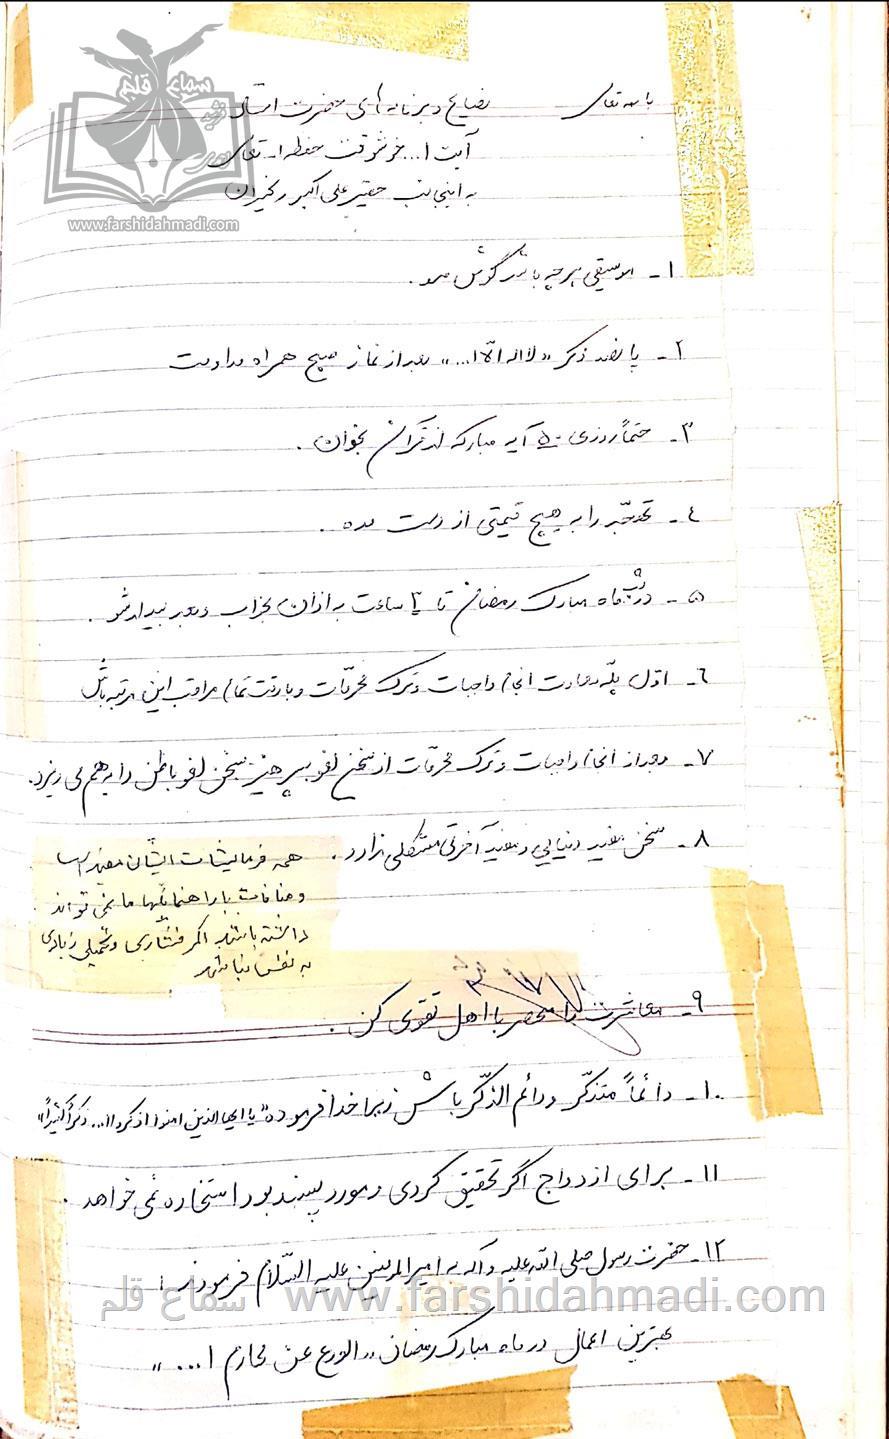 سماع قلم
www.farshidahmadi.com
باسمه تعالی
نصایح و برنامه های حضرت استاد
آیت ا... خوشوقت حفظه ا... تعالی
به اینجانب حقیر علی اکبر رنجبران
۱- موسیقی هر چه باشد گوش مده .
۲- پانصد ذکر «لا اله الّا ا...» بعد از نماز صبح همراه مداومت
۳- حتماً روزی ۵۰ آیه مبارکه از قرآن بخوان .
۴- تهجّد را به هیچ قیمتی از دست مده .
۵- در شب ماه مبارک رمضان تا ۲ ساعت به اذان بخواب و بعد بیدار شو .
۶- اوّل پلّه سعادت انجام واجبات و ترک محرّمات و با دقت تمام مراقب این مرتبه باش
۷- بعد از انجام واجبات و ترک محرّمات از سخن لغو بپرهیز سخن لغو باطن را به هم می ریزد.
۸- سخن مفید دنیایی و مفید آخرتی مشکلی ندارد .
همه فرمایشات ایشان مفید است
و منافات با راهنمائیها ما نمی تواند
داشته باشد اگر فشاری و تحمیلی زیادی
به نفس نباشد
۹- معاشرت را منحصر با اهل تقوی کن .
۱۰- دائماً متذکّر و دائم الذّکر باش زیرا خدا فرموده «یا ایها الذین امنوا اذکروا ا... ذکراً کثیراً»
۱۱- برای ازدواج اگر تحقیق کردی و مورد پسند بود استخاره نمی خواهد .
۱۲- حضرت رسول صلی الله علیه و آله به امیرالمومنین علیه السّلام فرمودند :
سماع قلم www.farshidahmadi.com
بهترین اعمال در ماه مبارک رمضان «الورع عن محارم ا...»